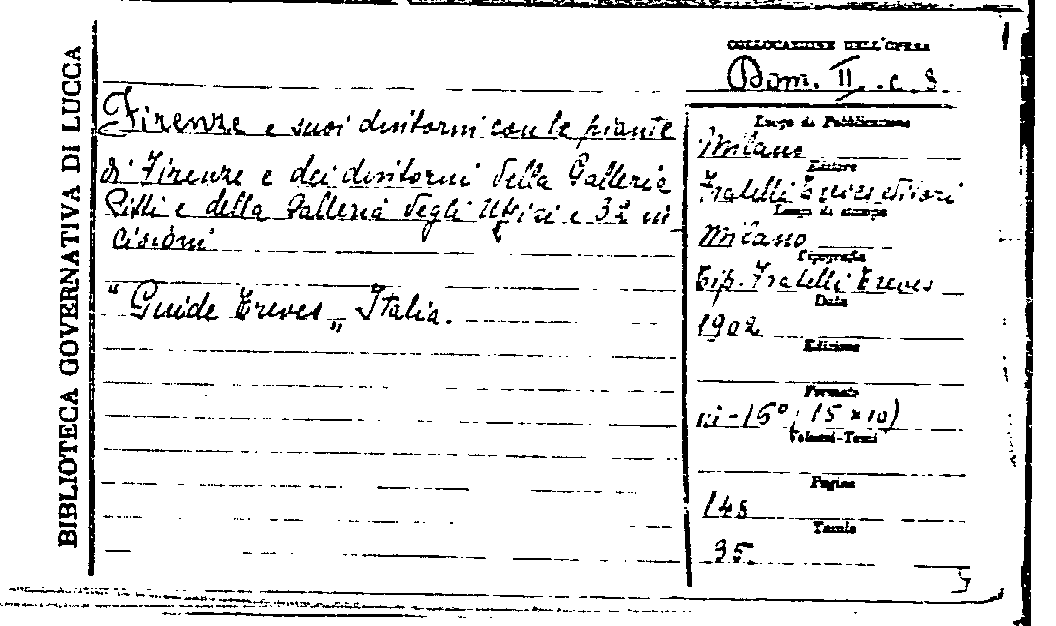 BIBLIOTECA GOVERNATIVA DI LUCCA
COLLOCAZIONE DELL'OPERA
Dom. II. c. 8.
Firenze e suoi dintorni con le piante
di Firenze e dei dintorni della Galleria
Pitti e della Galleria degli Uffizi e 32 in
cisioni
"Guide Treves„ Italia.
Luogo di Pubblicazione
Milano
Editore
Fratelli Treves editori
Luogo di stampa
Milano
Tipografia
Tip. Fratelli Treves
Data
1902
Edizione
Formato
in-16° (15 x 10)
Volumi-Tomi
Pagine
148
Tavole
35.